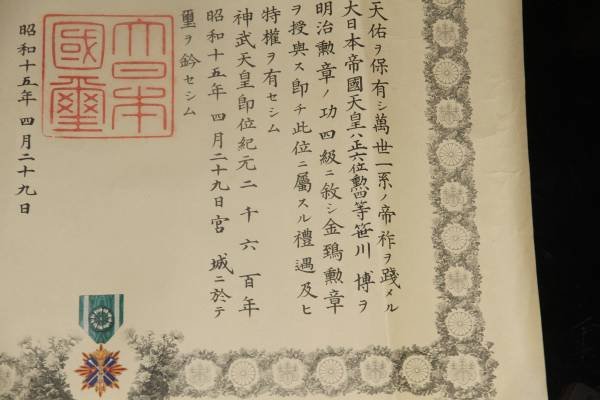 天佑ヲ保有シ萬世一系ノ帝祚ヲ踐メル
大日本帝國天皇ハ正六位勲四等笹川博ヲ
明治勲章ノ功四級ニ敘シ金鵄勲章
ヲ授與ス即チ此位ニ屬スル禮遇及ヒ
特權ヲ有セシム
神武天皇即位紀元二千六百年
昭和十五年四月二十九日宮城ニ於テ
璽ヲ鈐セシム
大日本國璽
昭和十五年四月二十九日